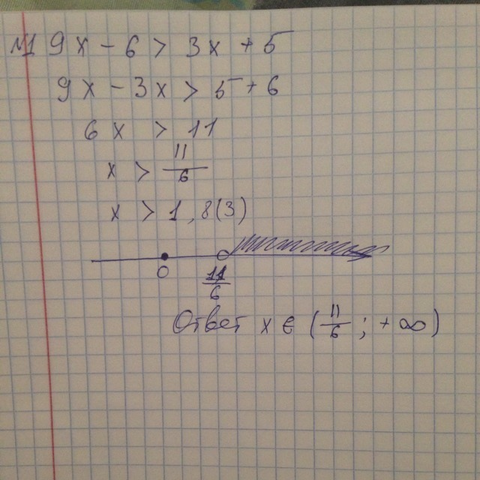 №1 9x - 6 > 3x + 5
9x - 3x > 5 + 6
6x > 11
x > 11/6
x > 1,8(3)
0 11/6
Ответ x ∈ (11/6 ; +∞)